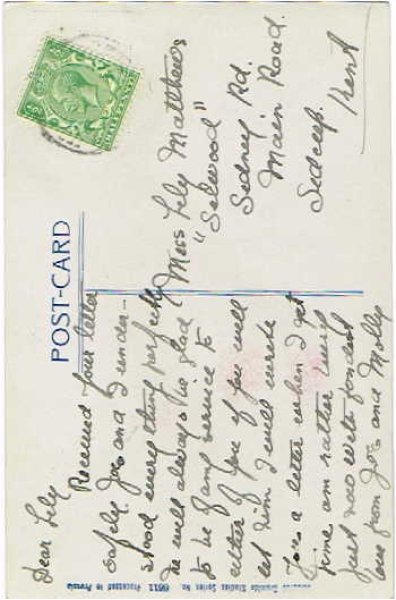 POST-CARD
Dear Lily
Received your letter
safely Jos and I under-
stood everything perfectly
he will always be glad
to be of any service to
either of you if you will
let him I will write
you a letter when I get
time am rather busy
just now with fondest
love from Jos and Molly
Miss Lily Matthews
"Selwood"
Sidney Rd.
Main Road.
Sidcup.
Kent
Series No. 6611 Processed in Prussia